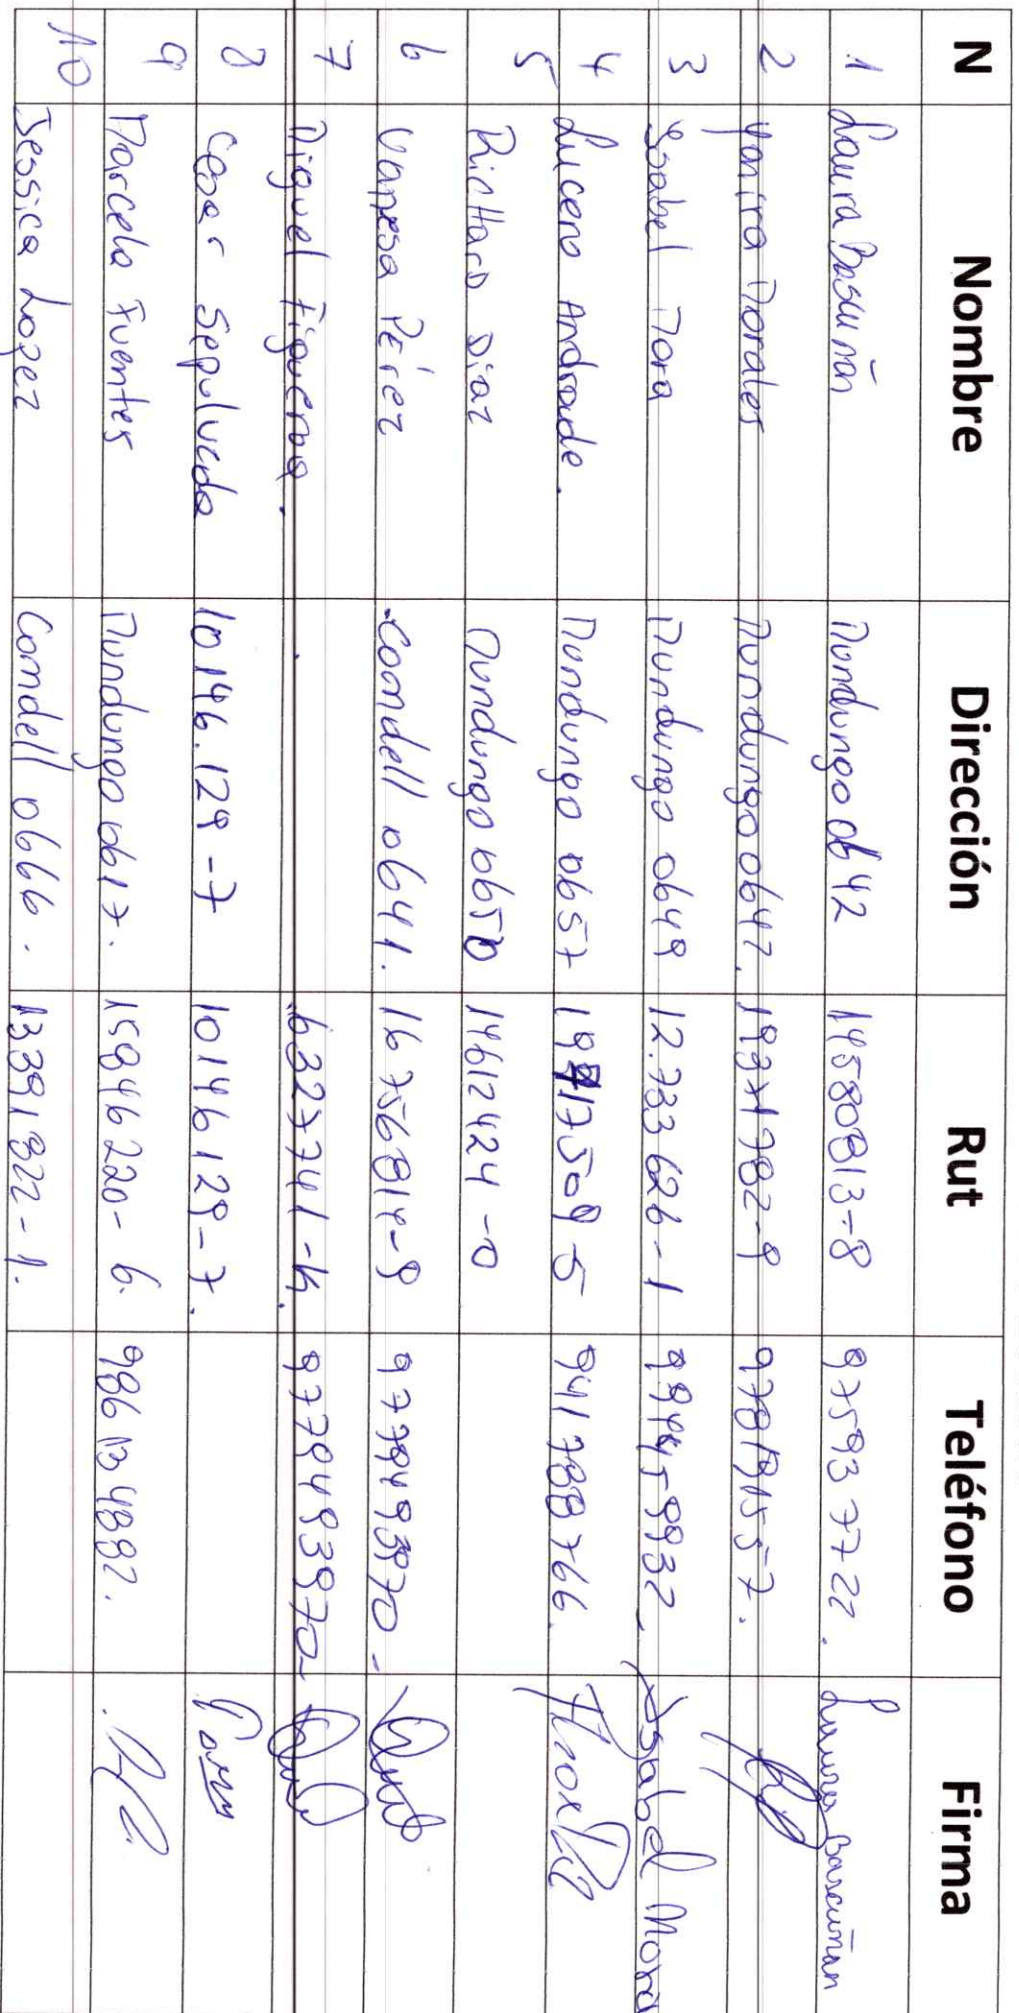 N Nombre Dirección Rut Teléfono Firma
1 Laura Bascuñan Mondungo 0642 14580813-8 975937722. Laura Bascuñan
2 Yanira Morales Mundungo 0647. 19371782-9
3 Isabel Mora Mundungo 0649 12.733626-1 994459932 Isabel Mora
4 Lucero Andrade. Mundungo 0657 5 941788766.
5 Richard Diaz Mundungo 14612424-0
6 Vanesa Pérez Condell 0641. 16756814-9 9779493970-
7 Miguel Figueroa. 6327741-k. 9779493970-
8 Cesar Sepulveda 10146.129-7 10146129-7.
9 Marcela Fuentes Mundungo 0617. 15946220-6.
10 Jessica Lopez Comdell 0666. 13391822-1.